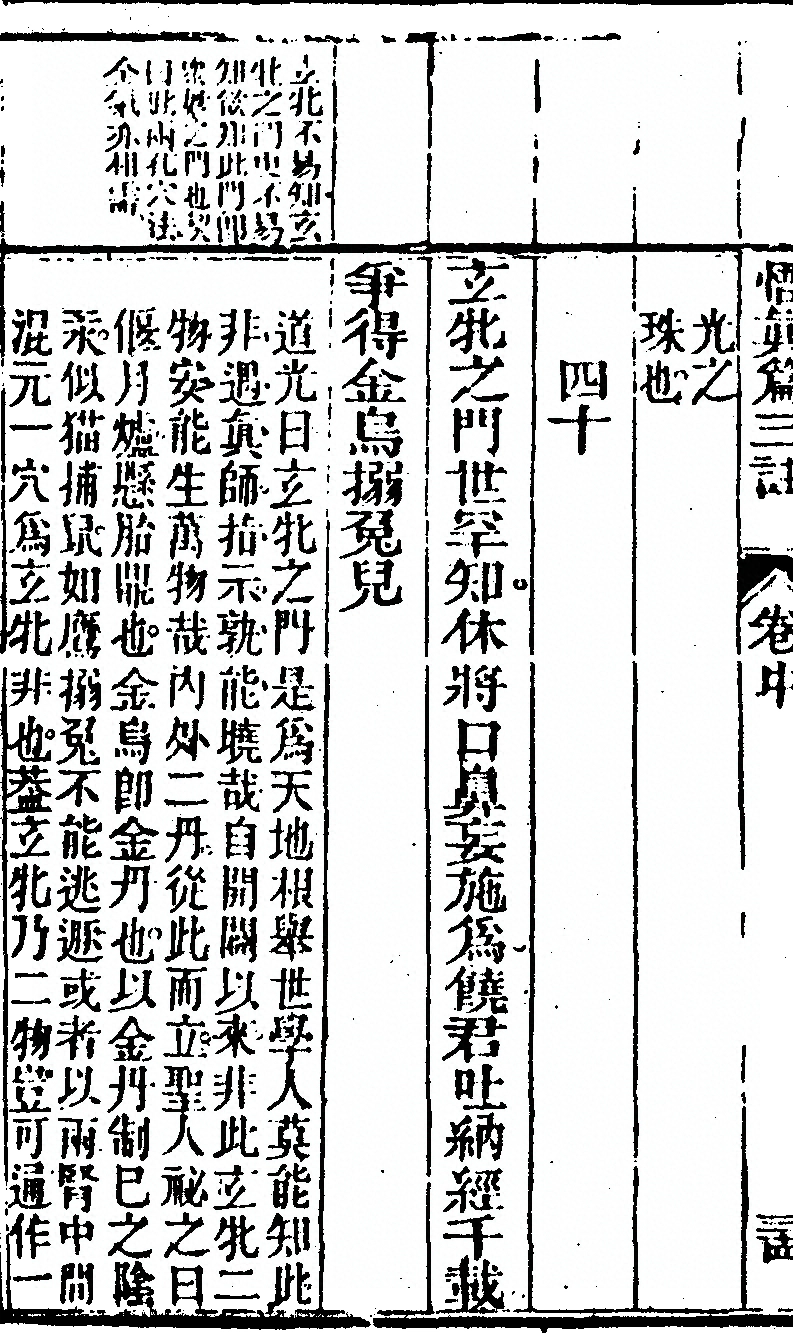 悟真篇三註　卷中
光之
珠也
四十
立牝之門世罕知休將口鼻妄施爲饒君吐納經千載
爭得金烏搦兔兒
立牝不易知立
牝之門更不易
知後那此門即
之門也契
曰此兩孔穴法
金氣亦相須
道光曰立牝之門是爲天地根舉世學人莫能知此
非遇真師指示孰能曉哉自開闢以來非此立牝二
物安能生萬物哉內外二丹從此而立聖人祕之曰
偃月爐懸胎鼎也金烏即金丹也以金丹制己之陰
汞似猫捕鼠如鷹搦兔不能逃遯或者以兩腎中間
混元一穴爲立牝非也蓋立牝乃二物豈可通作一